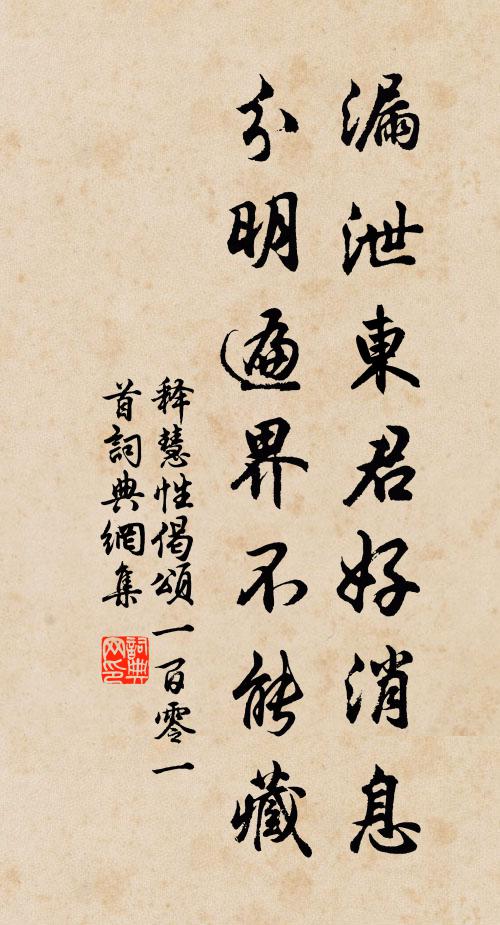 漏泄東君好消息
分明遍界不能藏
释慧性偈頌一百零一
首詞典網集
詞典网印